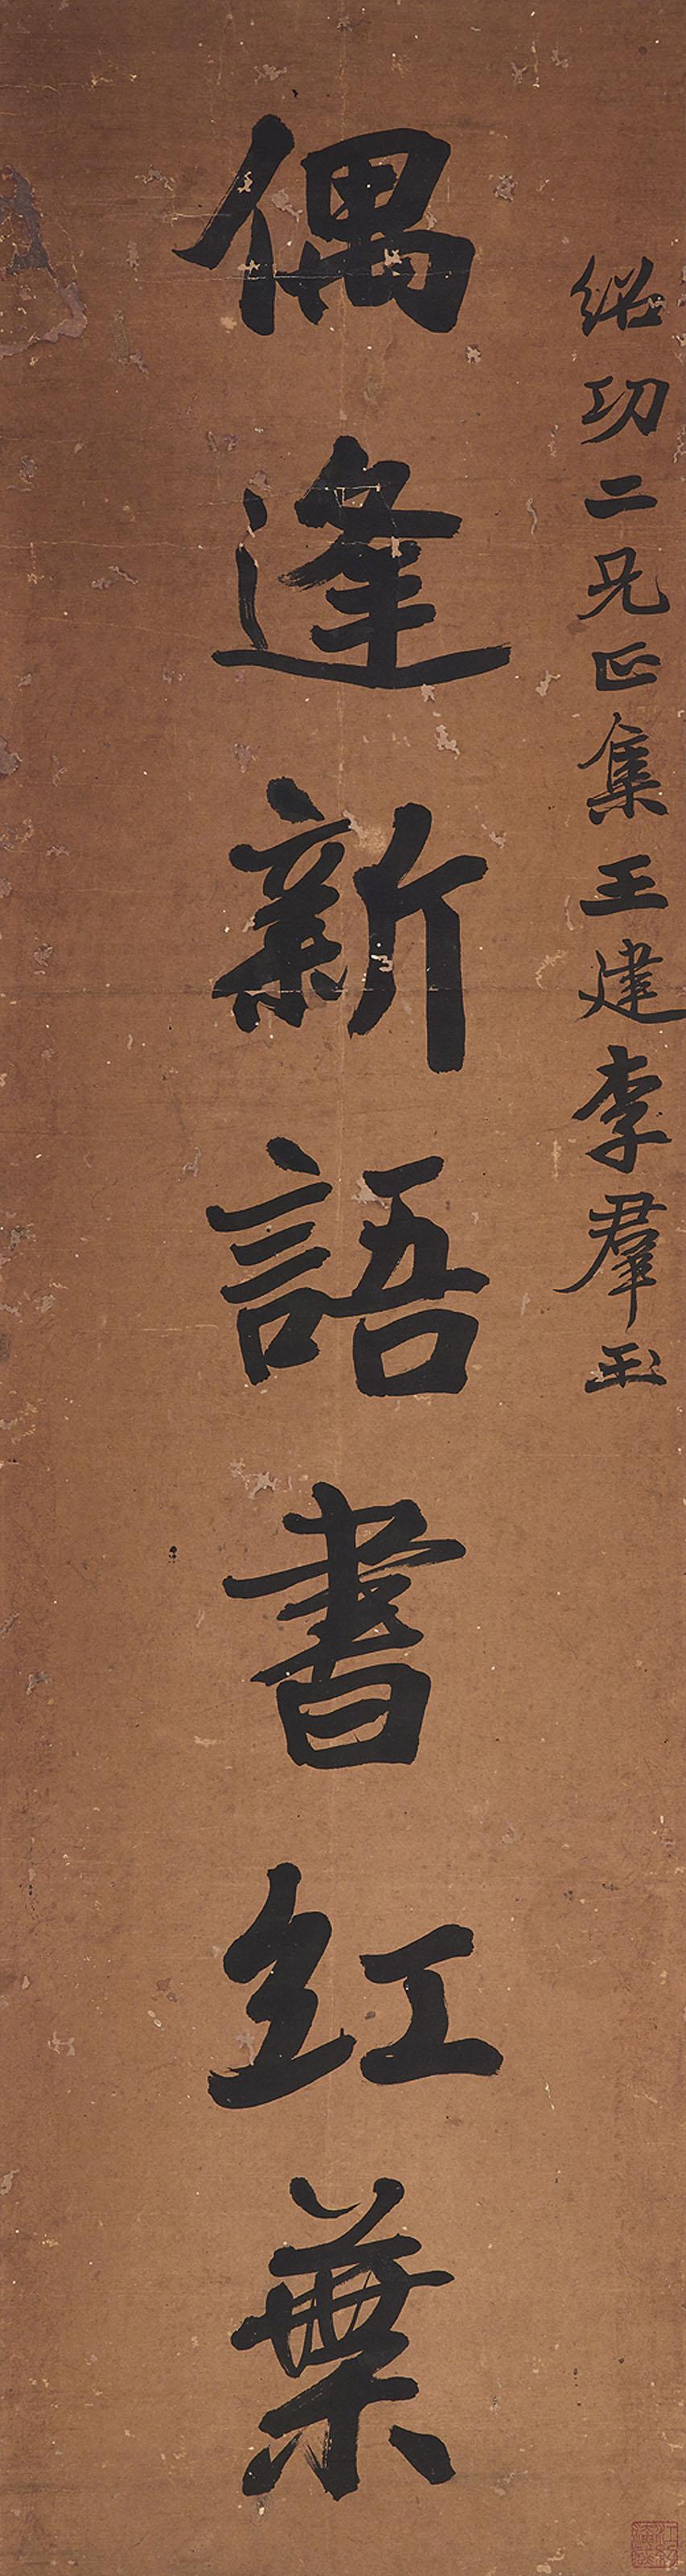 紹功二兄正集王建李羣玉
偶逢新語書紅葉